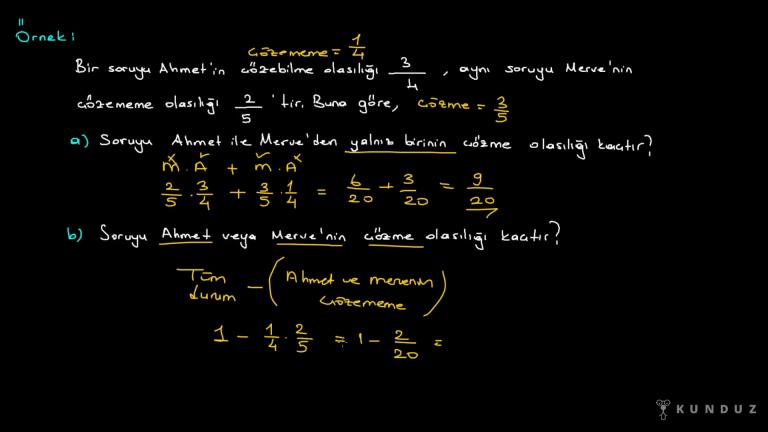 Örnek:
Çözememe = 1/4
Bir soruyu Ahmet'in çözebilme olasılığı 3/4, aynı soruyu Merve'nin
çözememe olasılığı 2/5 'tir. Buna göre, çözme = 3/5
a) Soruyu Ahmet ile Merve'den yalnız birinin çözme olasılığı kaçtır?
M . A + M . A
2/5 . 3/4 + 3/5 . 1/4 = 6/20 + 3/20 = 9/20
b) Soruyu Ahmet veya Merve'nin çözme olasılığı kaçtır?
Tüm durum - (Ahmet ve mervenin çözememe)
1 - 1/4 . 2/5 = 1 - 2/20 =
KUNDUZ